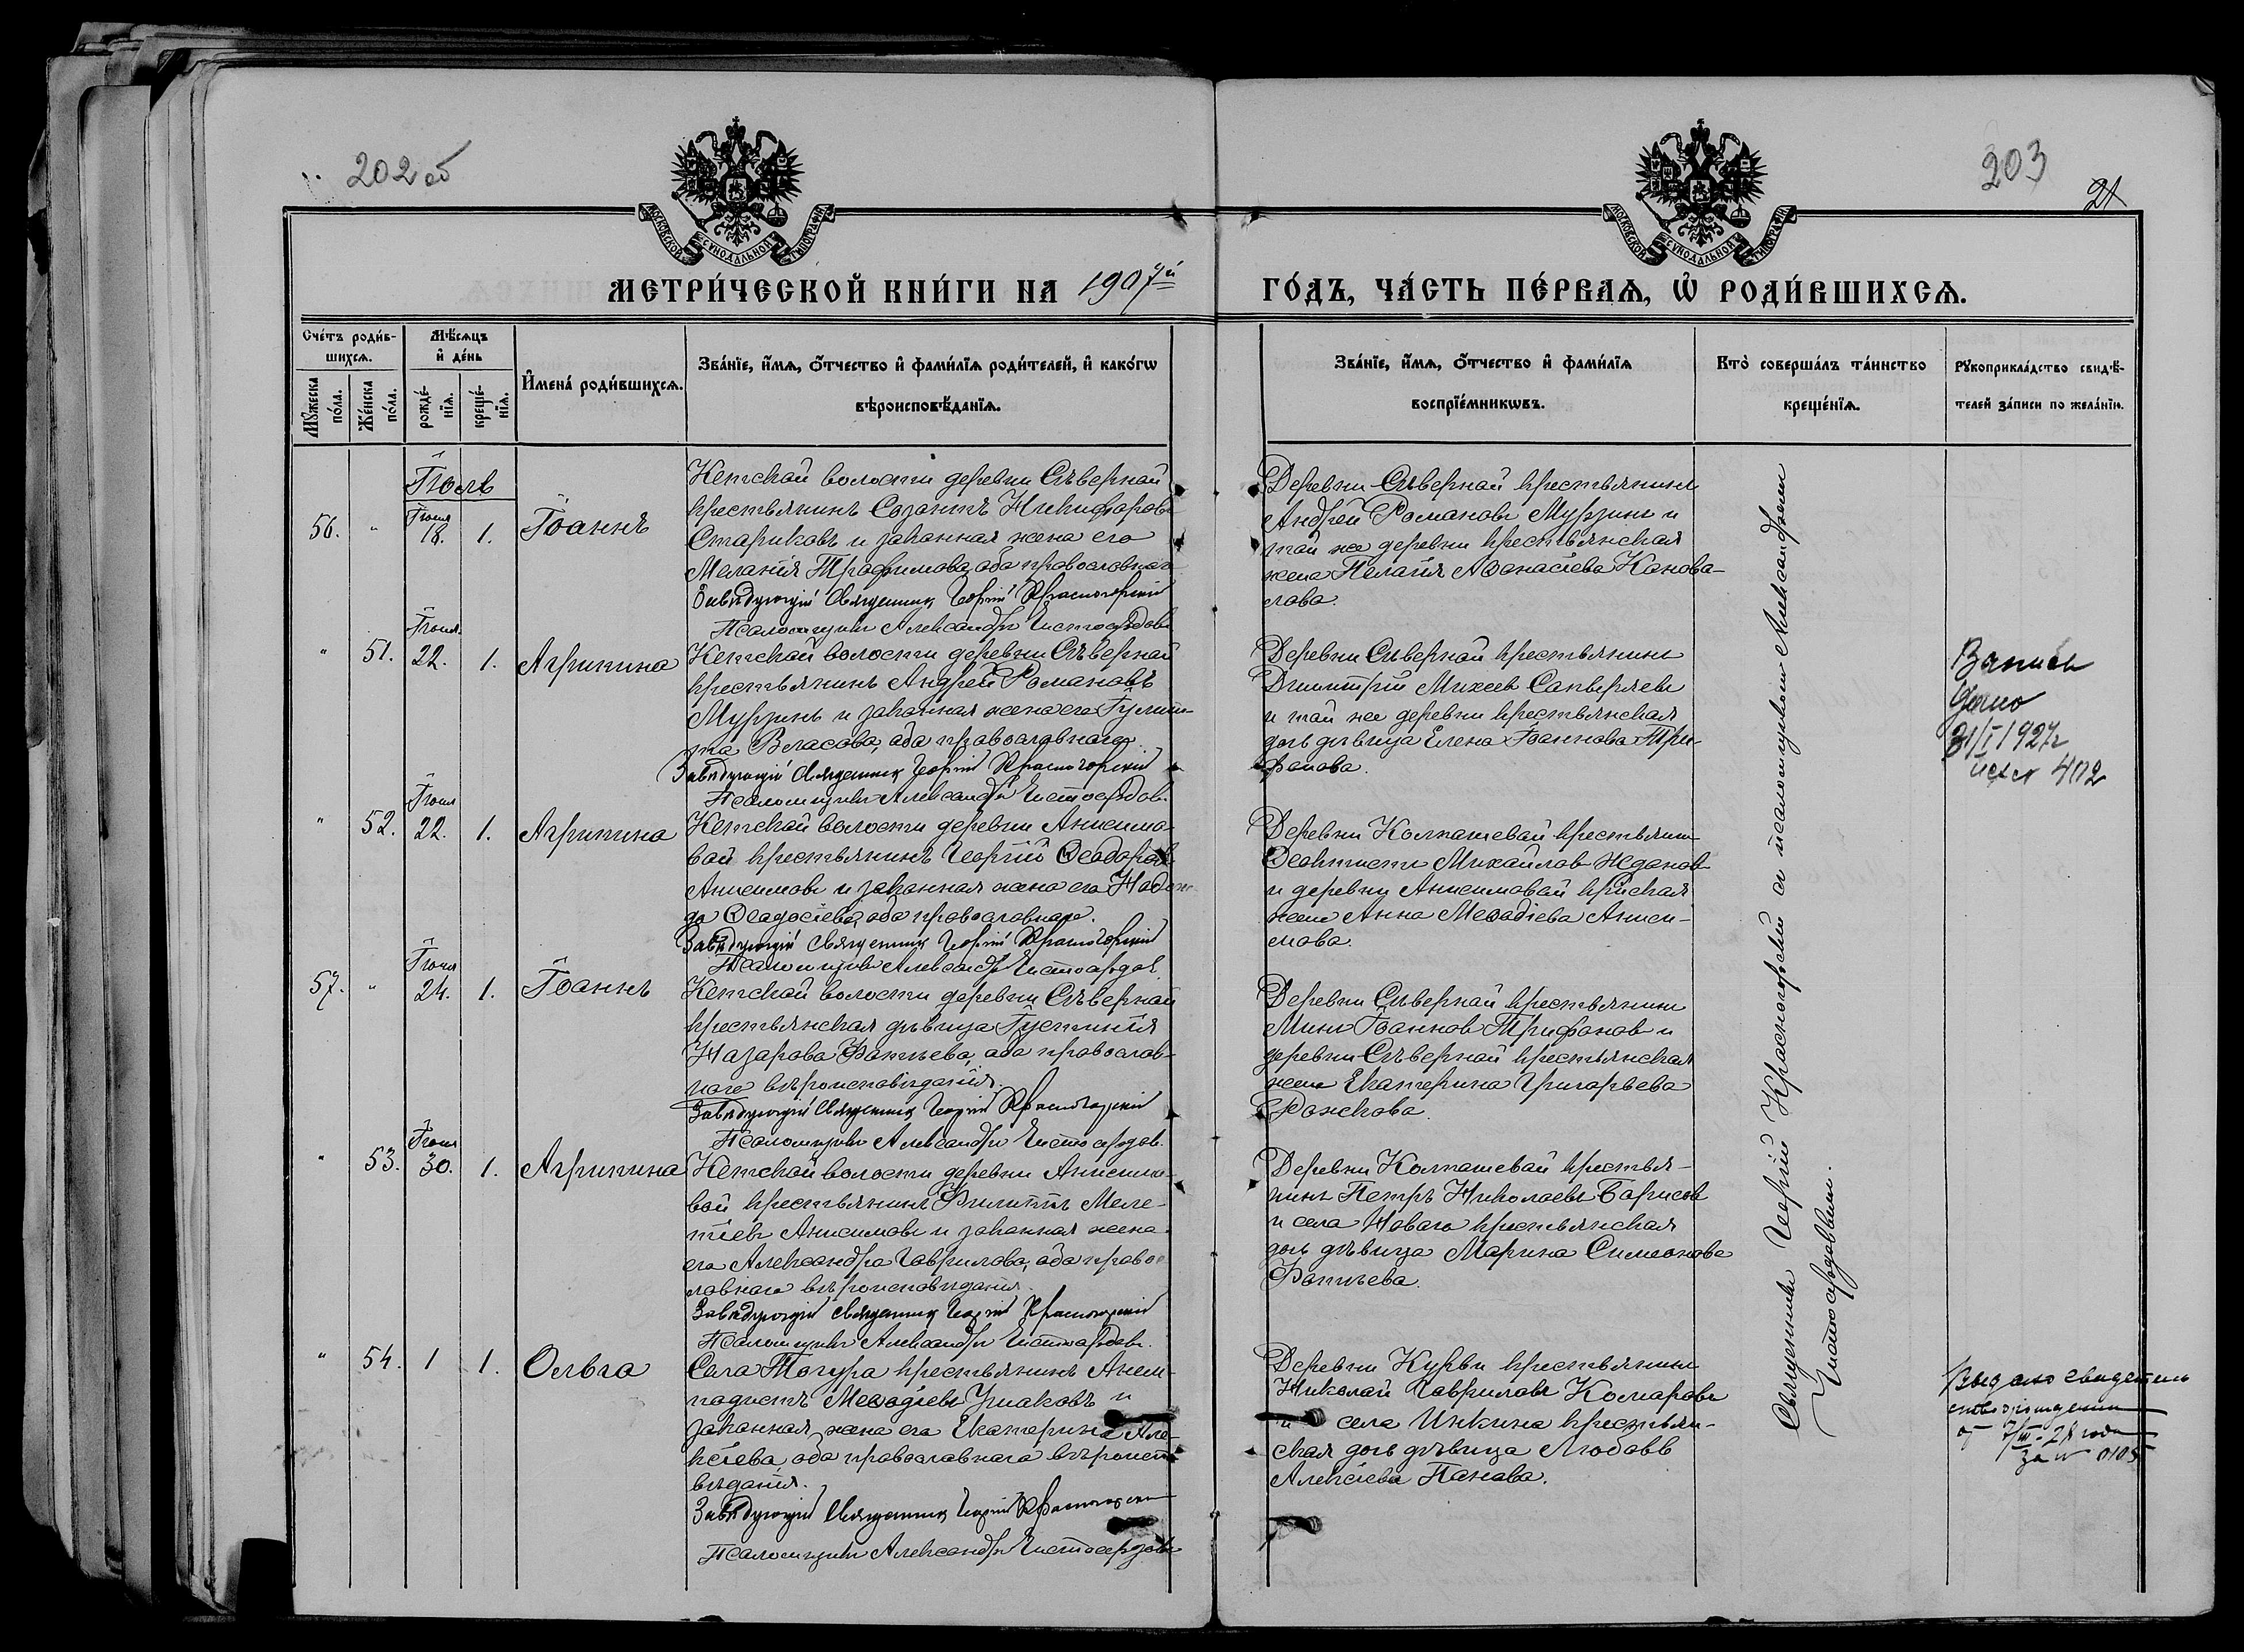 202 об
203
21
МОСКОВСКОЙ СѴНОДАЛЬНОЙ ТИПОГРАФІИ
МОСКОВСКОЙ СѴНОДАЛЬНОЙ ТИПОГРАФІИ
МЕТРИ́ЧЕСКОЙ КНИ́ГИ НА 1907й
ГО́ДЪ, ЧА́СТЬ ПЕ́РВАѦ, Ѡ РОДИ́ВШИХСѦ.
Сче́тъ роди́в-
шихсѧ.
Мѹжеска по́ла.
Же́нска по́ла.
Мѣ́сѧцъ
и де́нь
рожде́-
нїѧ.
креще́-
нїѧ.
Имена́ роди́вшихсѧ.
Зва́нїе, и́мѧ, о́тчество и фами́лїѧ роди́телей, и како́гѡ
вѣроисповѣ́данїѧ.
Зва́нїе, и́мѧ, о́тчество и фами́лїѧ
воспрїе́мникѡвъ.
Кто̀ соверша́лъ та́инство
креще́нїѧ.
Рѹкоприкла́дство свидѣ́-
телей за́писи по жела́нїю.
Іюль
56. " Іюня 18. 1. Іоаннъ
Кетской волости деревни Сѣверной
крестьянинъ Созонтъ Никифоровъ
Стариковъ и законная жена его
Меланія Трофимова, оба православнаго
Завѣдующій Священникъ Георгій Красногорскій
Псаломщикъ Александръ Чистосердовъ
Деревни Сѣверной крестьянинъ
Андрей Романовъ Мурзинъ и
той же деревни крестьянская
жена Пелагія Аѳанасіева Конова-
лова.
" 51. Іюня 22. 1. Агрипина
Кетской волости деревни Сѣверной
крестьянинъ Андрей Романовъ
Мурзинъ и законная жена его Іулит-
та Власова, оба православнаго
Завѣдующій Священникъ Георгій Красногорскій
Псаломщикъ Александръ Чистосердовъ
Деревни Сѣверной крестьянинъ
Димитрій Михеевъ
и той же деревни крестьянская
дочь дѣвица Елена Іоаннова Три-
фонова.
31/I 1927г
" 52. Іюня 22. 1. Агрипина
Кетской волости деревни Анисимо-
вой крестьянинъ Георгій Ѳеодоровъ
Анисимовъ и законная жена его Надеж-
да Ѳеодосіева, оба православнаго.
Завѣдующій Священникъ Георгій Красногорскій
Псаломщикъ Александръ Чистосердовъ
Деревни Колпашевой крестьянинъ
Ѳеоктистъ Михайловъ Ждановъ
и деревни Анисимовой кр-ская
жена Анна Меѳодіева Аниси-
мова.
57. " Іюня 24. 1. Іоаннъ
Кетской волости деревни Сѣверной
крестьянская дѣвица Іустинія
Назарова Фатѣева, оба православ-
наго вѣроисповѣданія.
Завѣдующій Священникъ Георгій Красногорскій
Псаломщикъ Александръ Чистосердовъ.
Деревни Сѣверной крестьянинъ
Мина Іоанновъ Трифоновъ и
деревни Сѣверной крестьянская
жена Екатерина Григорьева
" 53. Іюня 30. 1. Агрипина
Кетской волости деревни Анисимо-
вой крестьянинъ Филиппъ Меле-
тіевъ Анисимовъ и законная жена
его Александра Гаврилова, оба право-
славнаго вѣроисповѣданія.
Завѣдующій Священникъ Георгій Красногорскій
Псаломщикъ Александръ Чистосердовъ.
Деревни Колпашевой крестья-
нинъ Петръ Николаевъ Борисовъ
и села Новаго крестьянская
дочь дѣвица Марина Симеонова
Фатѣева.
" 54. 1 1. Ольга
Села Тогура крестьянинъ Анем-
подистъ Меѳодіевъ Ушаковъ и
законная жена его Екатерина Але-
ксѣева, оба православнаго вѣроиспо-
вѣданія.
Завѣдующій Священникъ Георгій Красногорскій
Псаломщикъ Александръ Чистосердовъ
Деревни Курьи крестьянинъ
Николай Гавриловъ Комаровъ
и села Инкина крестьян-
ская дочь дѣвица Любовь
Алексѣева Панова.
Выдано свидетель
ство о рождении
от 7/III-28 года
за № 0105
Священникъ Георгій Красногорскій съ псаломщикомъ Александромъ
Чистосердовымъ.